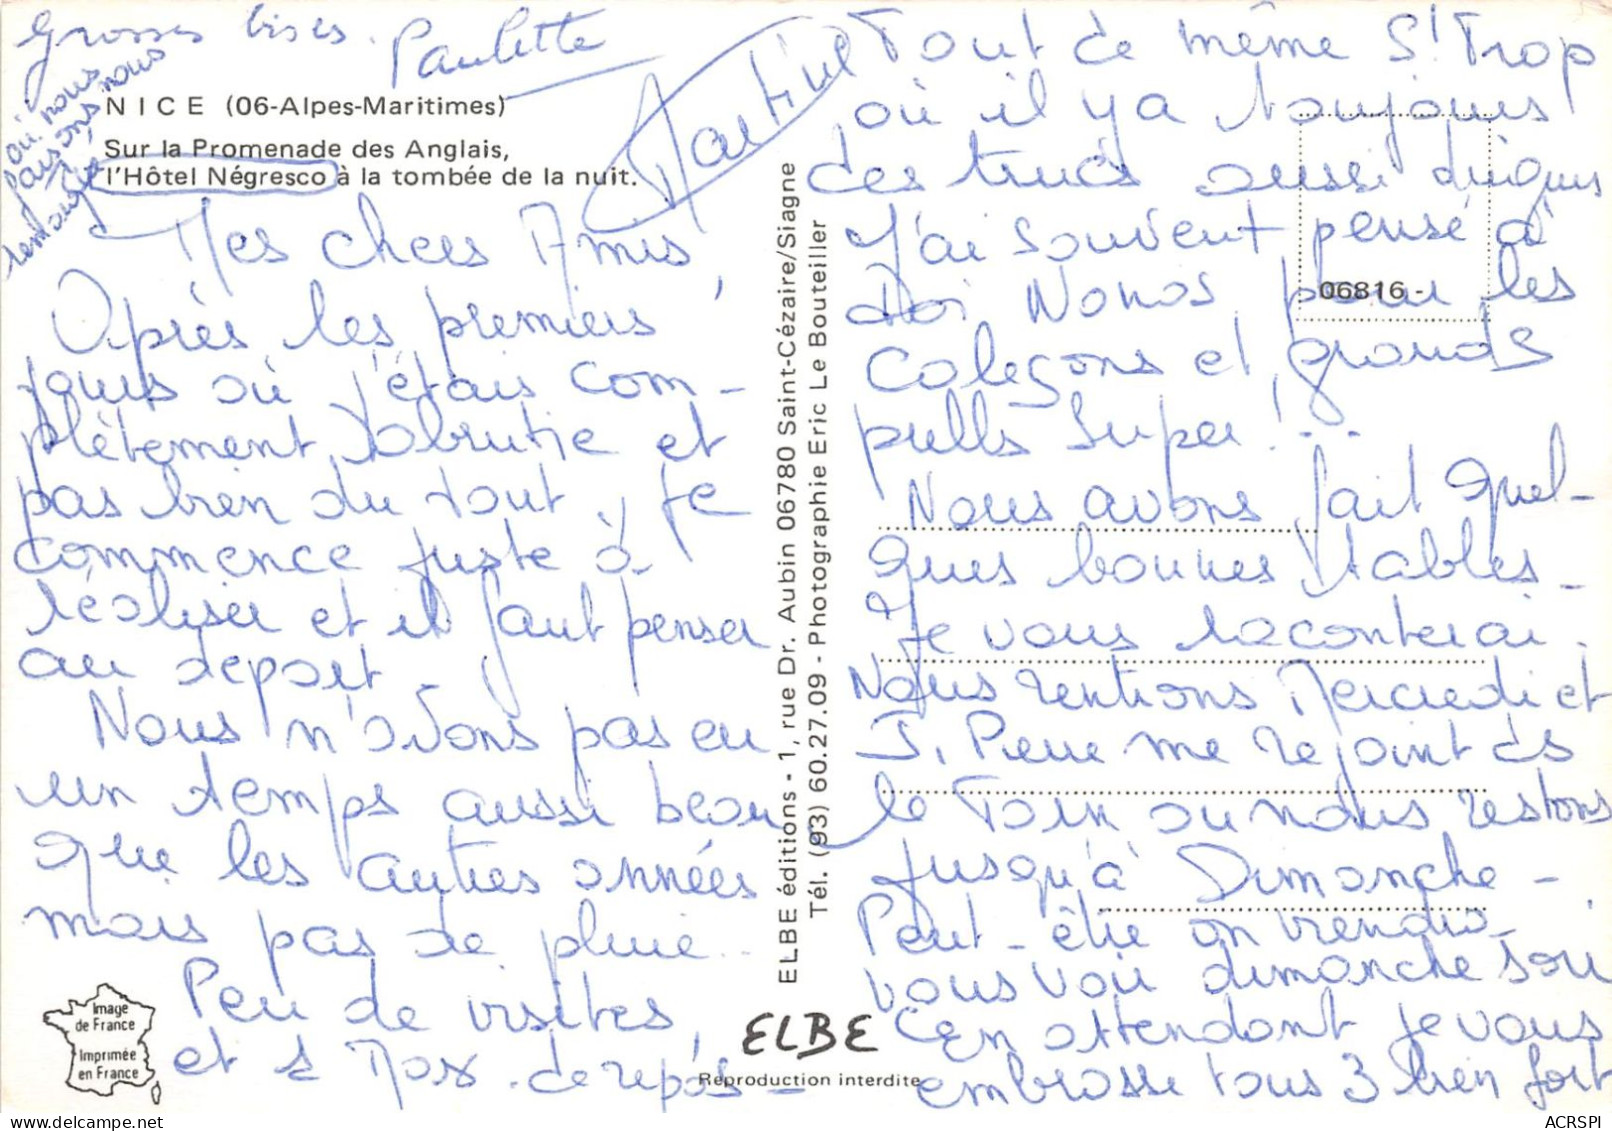 Grosses bises. Paulette
Martine
où nous
faisons nous
remarquer
NICE (06-Alpes-Maritimes)
Sur la Promenade des Anglais,
l'Hôtel Négresco à la tombée de la nuit.
Mes chers Amis,
Après les premiers
jours où j'étais com-
plètement abrutie et
pas bien du tout, je
commence juste à
réaliser et il faut penser
au départ.
Nous n'avons pas eu
un temps aussi beau
que les autres années
mais pas de pluie..
Peu de visites,
et 1 Max. de repos -
Image
de France
Imprimée
en France
ELBE éditions - 1, rue Dr. Aubin 06780 Saint-Cézaire/Siagne
Tél. (93) 60.27.09 - Photographie Eric Le Bouteiller
ELBE
Reproduction interdite
Tout de même St Trop
où il y a toujours
des trucs aussi dingues
J'ai souvent pensé à
Toi Nonos, pour les
Caleçons et grands
pulls super!..
06816 -
Nous avons fait quel-
ques bonnes tables -
Je vous raconterai.
Nous rentrons Mercredi et
J. Pierre me rejoint ds
le Train où nous restons
jusqu'à Dimanche -
Peut-être on viendra
vous voir dimanche soir
En attendant je vous
embrasse tous 3 bien fort
ACRSPI